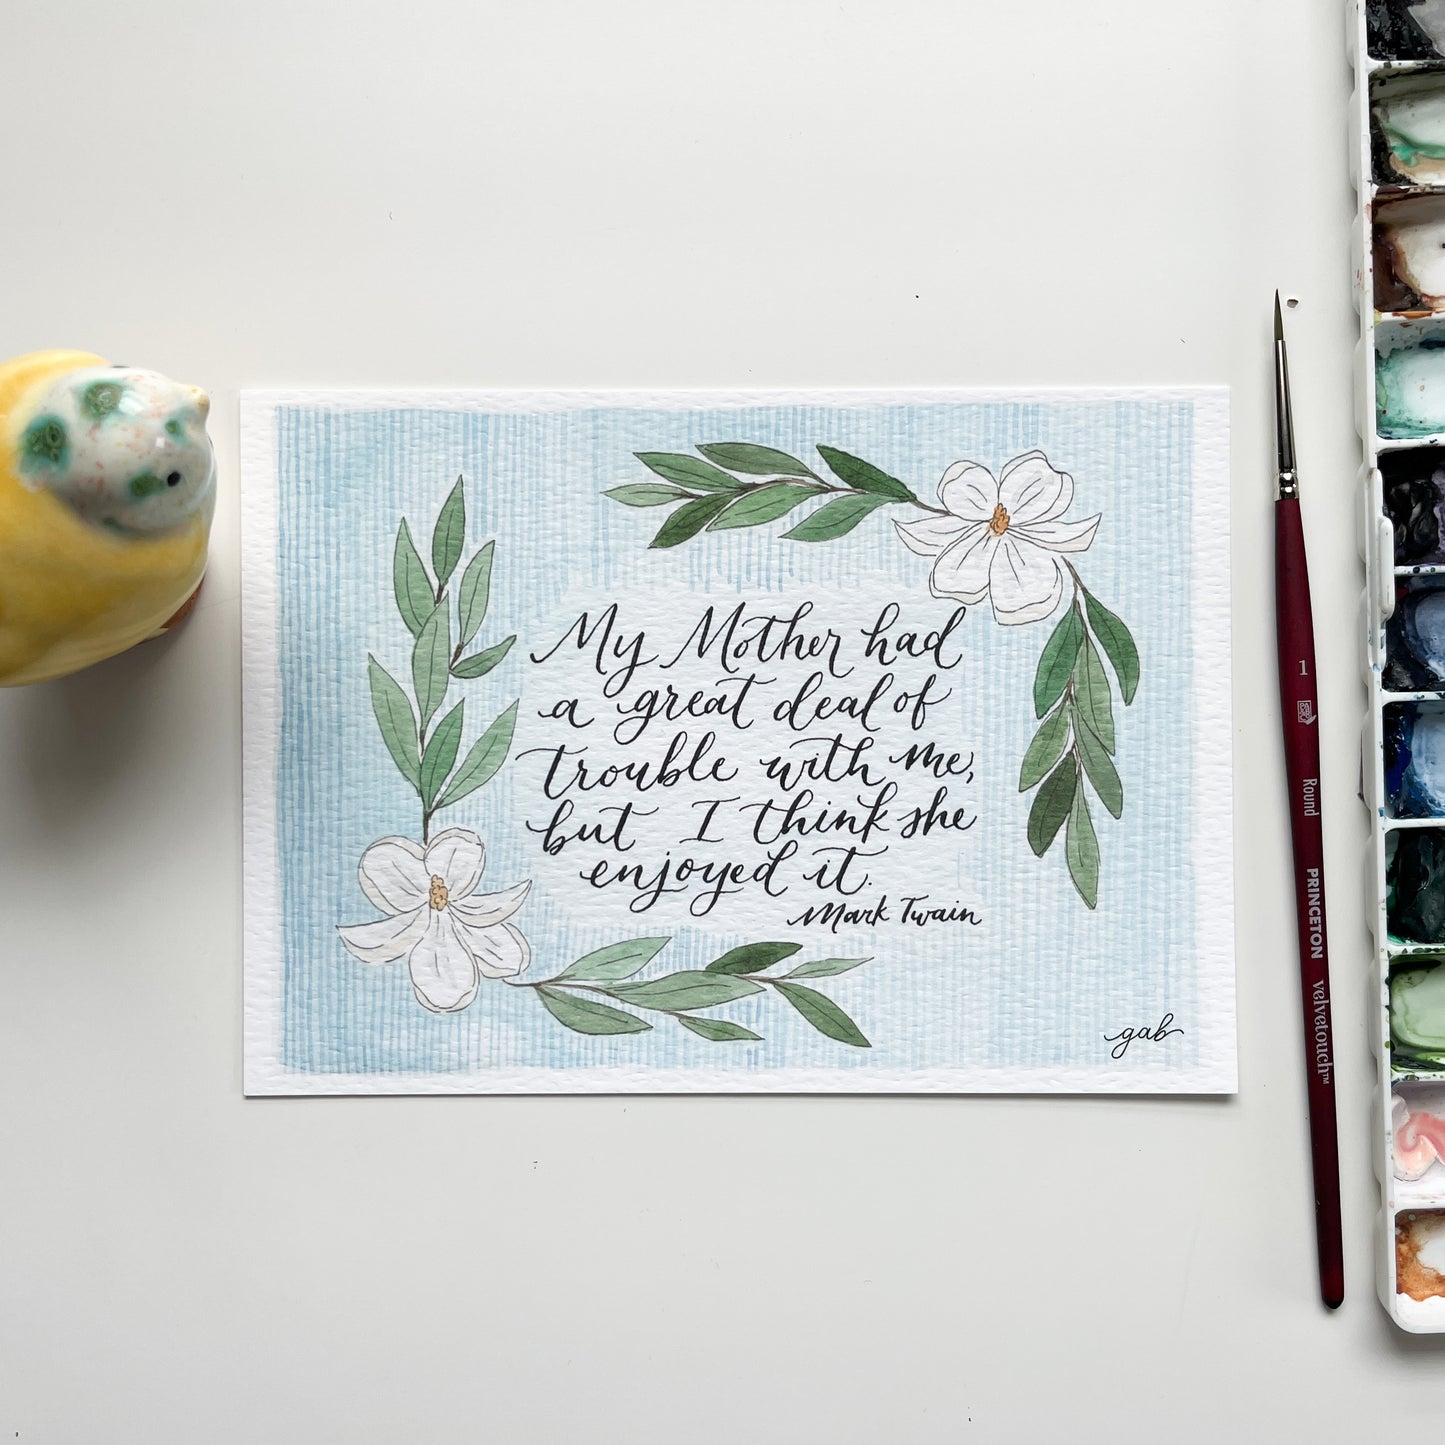 My Mother had
a great deal of
trouble with me,
but I think she
enjoyed it.
Mark Twain
gab
1
Round
PRINCETON
velvetouch™